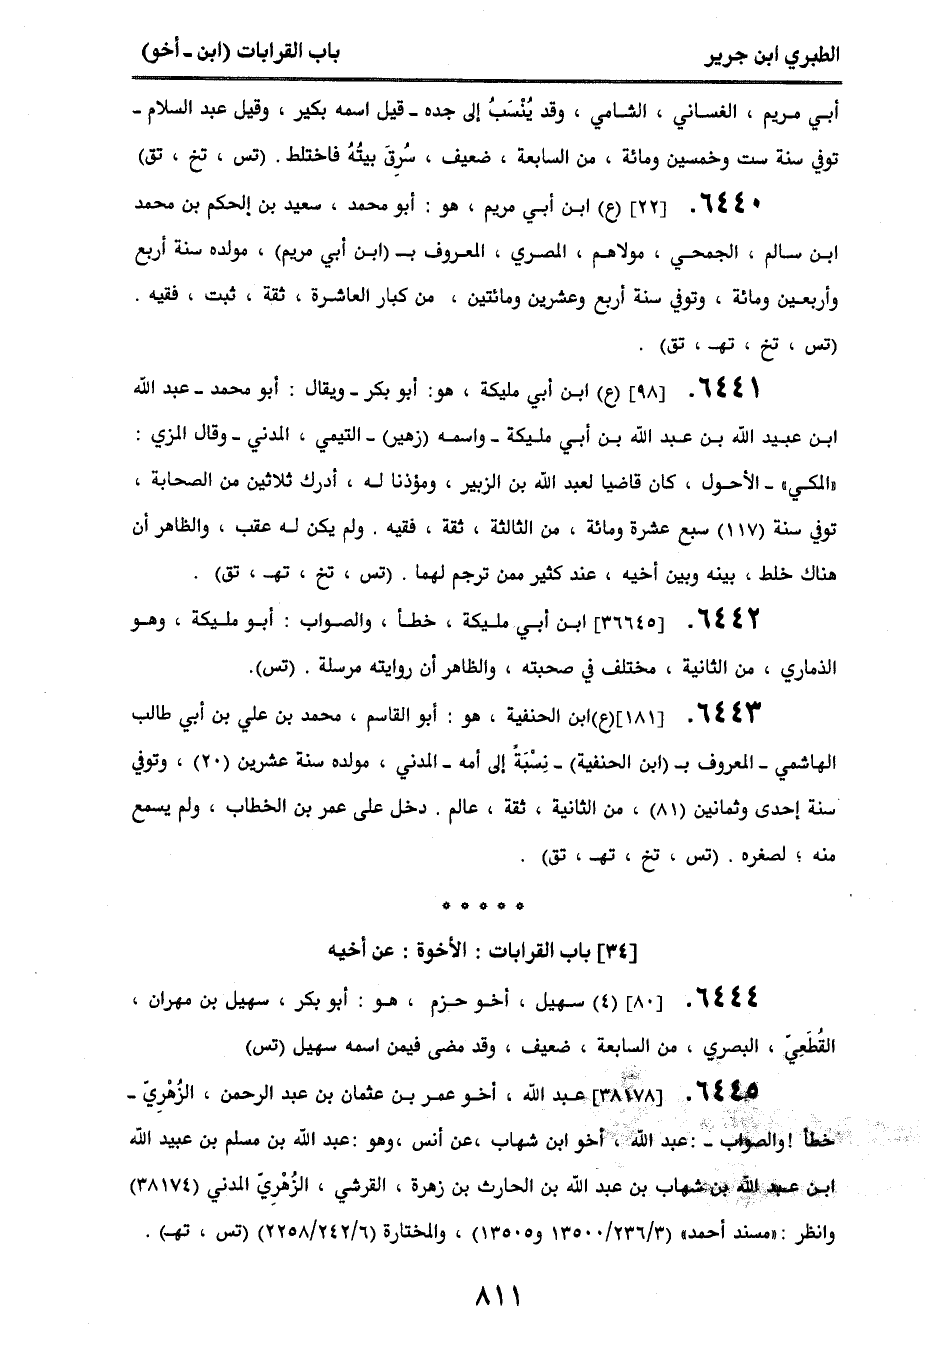 الطبري ابن جرير باب القرابات (ابن - أخو)
أبي مريم ، الغساني ، الشامي ، وقد يُنْسَبُ إلى جده - قيل اسمه بكير ، وقيل عبد السلام -
توفي سنة ست وخمسين ومائة ، من السابعة ، ضعيف ، سُرِقَ بيتُهُ فاختلط . (تس ، تخ ، تق)
٦٤٤٠. [٢٢] (ع) ابن أبي مريم ، هو : أبو محمد ، سعيد بن الحكم بن محمد
ابن سالم ، الجمحي ، مولاهم ، المصري ، المعروف بـ (ابن أبي مريم) ، مولده سنة أربع
وأربعين ومائة ، وتوفي سنة أربع وعشرين ومائتين ، من كبار العاشرة ، ثقة ، ثبت ، فقيه .
(تس ، تخ ، تهـ ، تق) .
٦٤٤١. [٩٨] (ع) ابن أبي مليكة ، هو: أبو بكر - ويقال : أبو محمد - عبد الله
ابن عبيد الله بن عبد الله بن أبي مليكة - واسمه (زهير) - التيمي ، المدني - وقال المزي :
«المكي» - الأحول ، كان قاضيا لعبد الله بن الزبير ، ومؤذنا له ، أدرك ثلاثين من الصحابة ،
توفي سنة (١١٧) سبع عشرة ومائة ، من الثالثة ، ثقة ، فقيه . ولم يكن له عقب ، والظاهر أن
هناك خلط ، بينه وبين أخيه ، عند كثير ممن ترجم لهما . (تس ، تخ ، تهـ ، تق) .
٦٤٤٢. [٣٦٦٤٥] ابن أبي مليكة ، خطأ ، والصواب : أبو مليكة ، وهو
الذماري ، من الثانية ، مختلف في صحبته ، والظاهر أن روايته مرسلة . (تس).
٦٤٤٣. [١٨١](ع)ابن الحنفية ، هو : أبو القاسم ، محمد بن علي بن أبي طالب
الهاشمي - المعروف بـ (ابن الحنفية) - نِسْبَةً إلى أمه - المدني ، مولده سنة عشرين (٢٠) ، وتوفي
سنة إحدى وثمانين (٨١) ، من الثانية ، ثقة ، عالم . دخل على عمر بن الخطاب ، ولم يسمع
منه ؛ لصغره . (تس ، تخ ، تهـ ، تق) .
* * * * *
[٣٤] باب القرابات : الأخوة : عن أخيه
٦٤٤٤. [٨٠] (٤) سهيل ، أخو حزم ، هو : أبو بكر ، سهيل بن مهران ،
القُطَعِيّ ، البصري ، من السابعة ، ضعيف ، وقد مضى فيمن اسمه سهيل (تس)
٦٤٤٥. [٣٨١٧٨] عبد الله ، أخو عمر بن عثمان بن عبد الرحمن ، الزُهْريّ -
خطأ !والصواب - :عبد الله ، أخو ابن شهاب ،عن أنس ،وهو :عبد الله بن مسلم بن عبيد الله
ابن عبد الله بن شهاب بن عبد الله بن الحارث بن زهرة ، القرشي ، الزُهْريّ المدني (٣٨١٧٤)
وانظر :«مسند أحمد» (١٣٥٠٠/٢٣٦/٣ و١٣٥٠٥) ، والمختارة (٢٢٥٨/٢٤٢/٦) (تس ، تهـ) .
٨١١